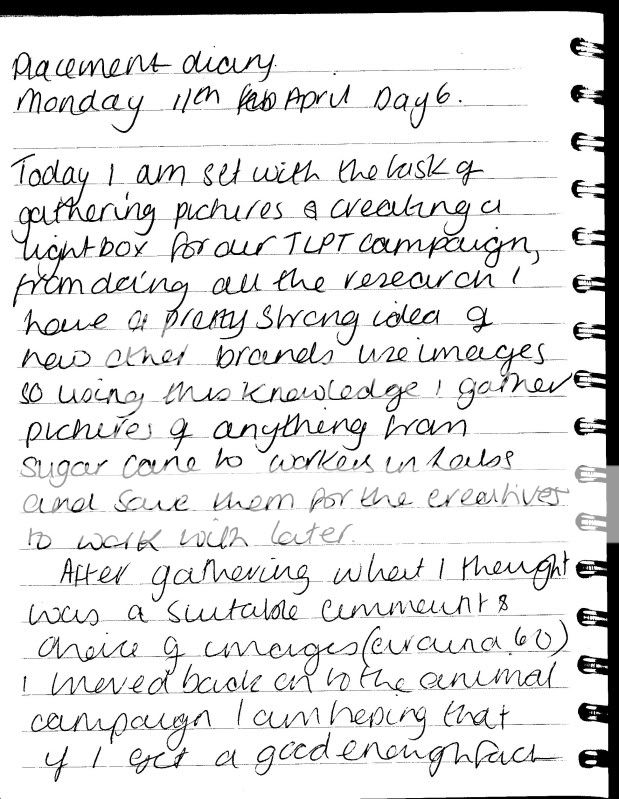 Placement diary.
Monday 11th Feb April Day 6.
Today I am set with the task of
gathering pictures & creating a
lightbox for our TLPT campaign,
from doing all the research I
have a pretty strong idea of
how other brands use images
so using this knowledge I gather
pictures of anything from
sugar cane to workers in labs
and save them for the creatives
to work with later.
After gathering what I thought
was a suitable ammount &
choice of images (around 60)
I moved back on to the animal
campaign I am hoping that
if I get a good enough fact